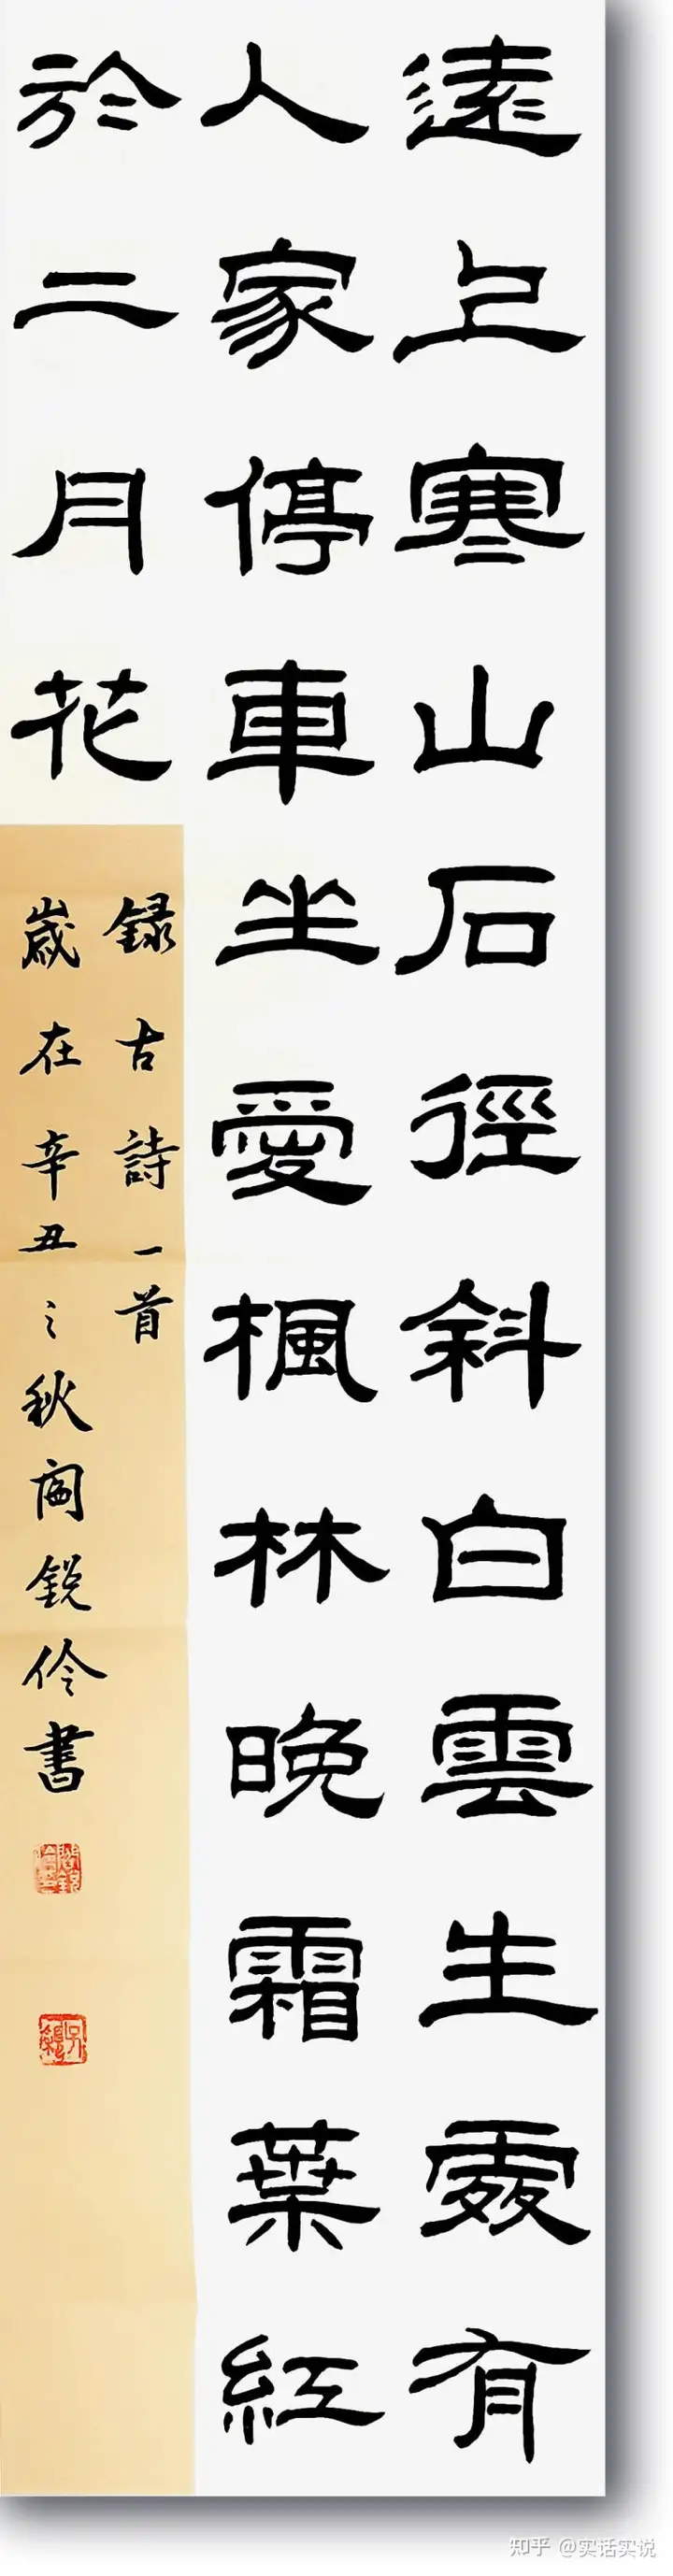 遠上寒山石徑斜白雲生處有
人家停車坐愛楓林晚霜葉紅
於二月花
録古詩一首
歲在辛丑之秋閤銳伶書
知乎 @实话实说